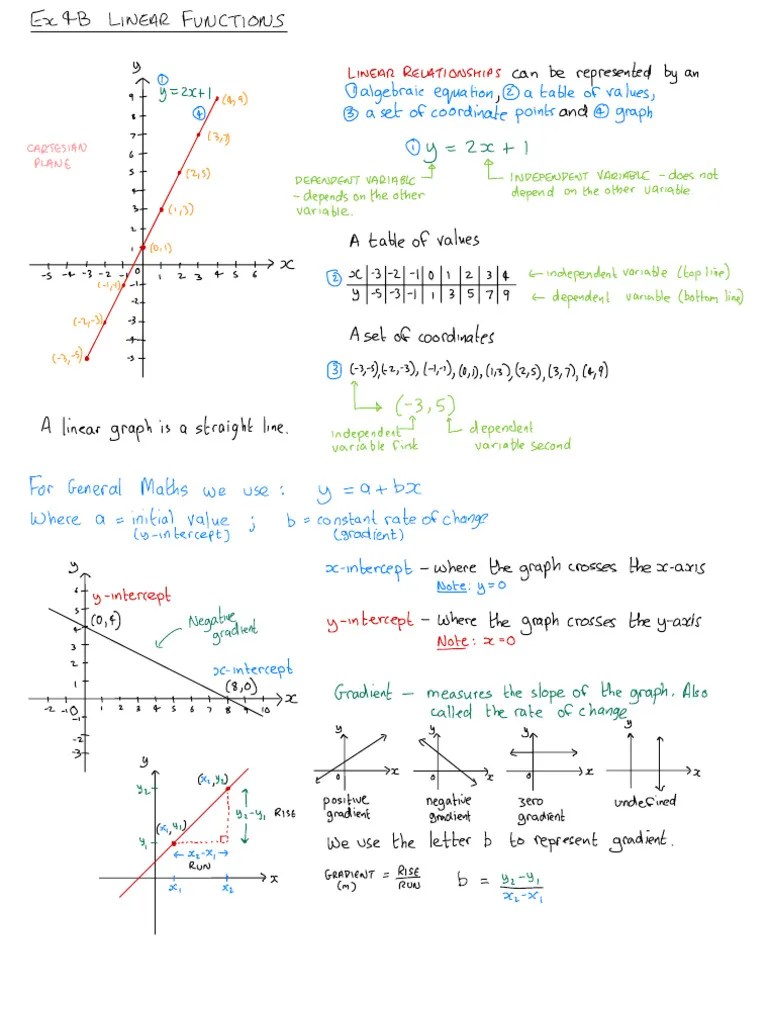 Ex 4B LINEAR FUNCTIONS
y
①
y = 2x+1
④
(4,9)
(3,7)
(2,5)
(1,3)
(0,1)
(-1,-1)
(-2,-3)
(-3,-5)
CARTESIAN
PLANE
9
8
7
6
5
4
3
2
1
-5 -4 -3 -2 -1 0 1 2 3 4 5 6 x
-1
-2
-3
-4
-5
A linear graph is a straight line.
LINEAR RELATIONSHIPS can be represented by an
① algebraic equation, ② a table of values,
③ a set of coordinate points and ④ graph
① y = 2x + 1
DEPENDENT VARIABLE
- depends on the other
variable.
INDEPENDENT VARIABLE - does not
depend on the other variable.
A table of values
② x -3 -2 -1 0 1 2 3 4 ← independent variable (top line)
y -5 -3 -1 1 3 5 7 9 ← dependent variable (bottom line)
A set of coordinates
③ (-3,-5), (-2,-3), (-1,-1), (0,1), (1,3), (2,5), (3,7), (4,9)
(-3,5)
independent
variable first
dependent
variable second
For General Maths we use : y = a + bx
Where a = initial value ; b = constant rate of change
(y-intercept) (gradient)
y
6
5
4
3
2
1
y-intercept
(0,4)
Negative
gradient
x-intercept
(8,0)
-2 -1 0 1 2 3 4 5 6 7 8 9 10 x
-1
-2
-3
x-intercept - where the graph crosses the x-axis
Note: y=0
y-intercept - where the graph crosses the y-axis
Note: x=0
Gradient - measures the slope of the graph. Also
called the rate of change
y y y y
0 x 0 x 0 x 0 x
positive
gradient
negative
gradient
zero
gradient
undefined
We use the letter b to represent gradient.
GRADIENT = RISE / RUN
(m)
b = y₂-y₁ / x₂-x₁
y
y₂
y₁
(x₁,y₂)
(x₁,y₁)
y₂-y₁ RISE
← x₂-x₁ →
RUN
x₁ x₂ x